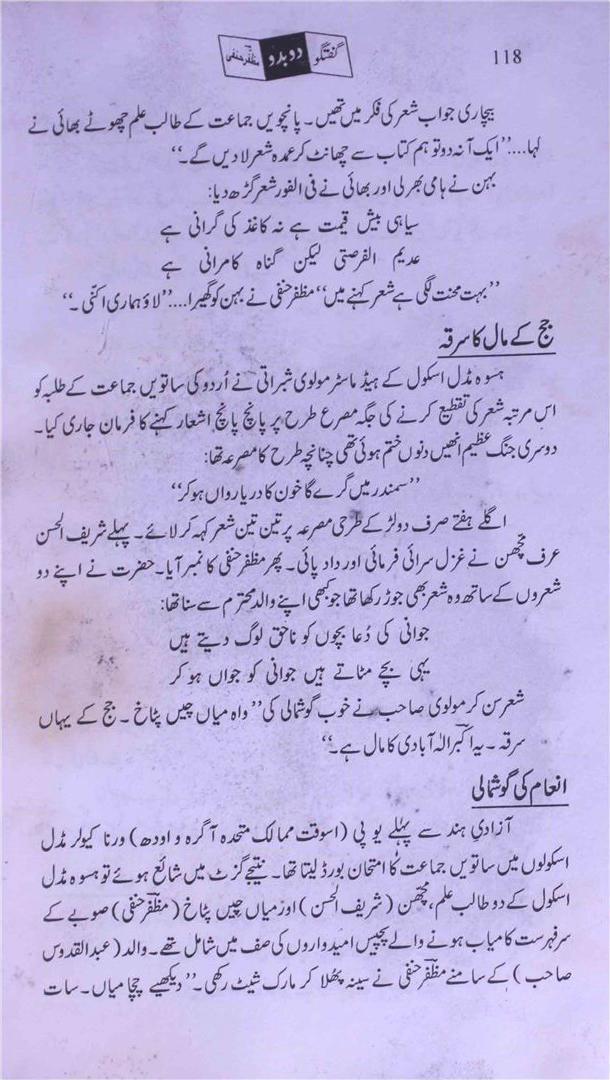 گفتگو دوبدو مظفر حنفی
118
بیچاری جواب شعر کی فکر میں تھیں۔ پانچویں جماعت کے طالب علم چھوٹے بھائی نے
کہا....’’ایک آنہ دو تو ہم کتاب سے چھانٹ کر عمدہ شعر لا دیں گے۔‘‘
بہن نے ہامی بھر لی اور بھائی نے فی الفور شعر گڑھ دیا:
سیاہی بیش قیمت ہے نہ کاغذ کی گرانی ہے
عدیم الفرصتی لیکن گناہ کامرانی ہے
’’بہت محنت لگی ہے شعر کہنے میں‘‘ مظفر حنفی نے بہن کو گھیرا....’’لاؤ ہماری اکنّی۔‘‘
جج کے مال کا سرقہ
ہسوہ مڈل اسکول کے ہیڈ ماسٹر مولوی شبراتی نے اُردو کی ساتویں جماعت کے طلبہ کو
اس مرتبہ شعر کی تقطیع کرنے کی جگہ مصرع طرح پر پانچ پانچ اشعار کہنے کا فرمان جاری کیا۔
دوسری جنگ عظیم انھیں دنوں ختم ہوئی تھی چنانچہ طرح کا مصرعہ تھا:
’’سمندر میں گرے گا خون کا دریا رواں ہو کر‘‘
اگلے ہفتے صرف دو لڑکے طرحی مصرعہ پر تین تین شعر کہہ کر لائے۔ پہلے شریف الحسن
عرف مچھن نے غزل سرائی فرمائی اور داد پائی۔ پھر مظفر حنفی کا نمبر آیا۔ حضرت نے اپنے دو
شعروں کے ساتھ وہ شعر بھی جوڑ رکھا تھا جو کبھی اپنے والد محترم سے سنا تھا:
جوانی کی دُعا بچوں کو ناحق لوگ دیتے ہیں
یہی بچے مٹاتے ہیں جوانی کو جواں ہو کر
شعر سن کر مولوی صاحب نے خوب گوشمالی کی ’’واہ میاں چیں پٹاخ۔ جج کے یہاں
سرقہ۔ یہ اکبرؔ الٰہ آبادی کا مال ہے۔‘‘
انعام کی گوشمالی
آزادیِ ہند سے پہلے یو پی (اسوقت ممالک متحدہ آگرہ و اودھ) ورناکیولر مڈل
اسکولوں میں ساتویں جماعت کا امتحان بورڈ لیتا تھا۔ نتیجے گزٹ میں شائع ہوئے تو ہسوہ مڈل
اسکول کے دو طالب علم، مچھن (شریف الحسن) اور میاں چیں پٹاخ (مظفرؔ حنفی) صوبے کے
سرفہرست کامیاب ہونے والے پچیس امیدواروں کی صف میں شامل تھے۔ والد (عبدالقدوس
صاحب) کے سامنے مظفرؔ حنفی نے سینہ پھلا کر مارک شیٹ رکھی۔ ’’دیکھیے چچا میاں۔ سات